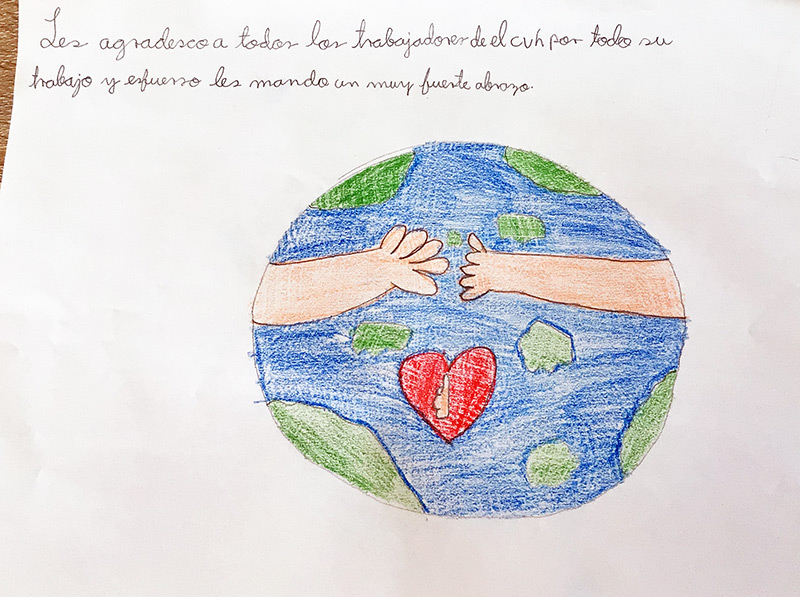 Les agradesco a todos los trabajadores de el cvh por todo su
trabajo y esfuerso les mando un muy fuerte abrazo.